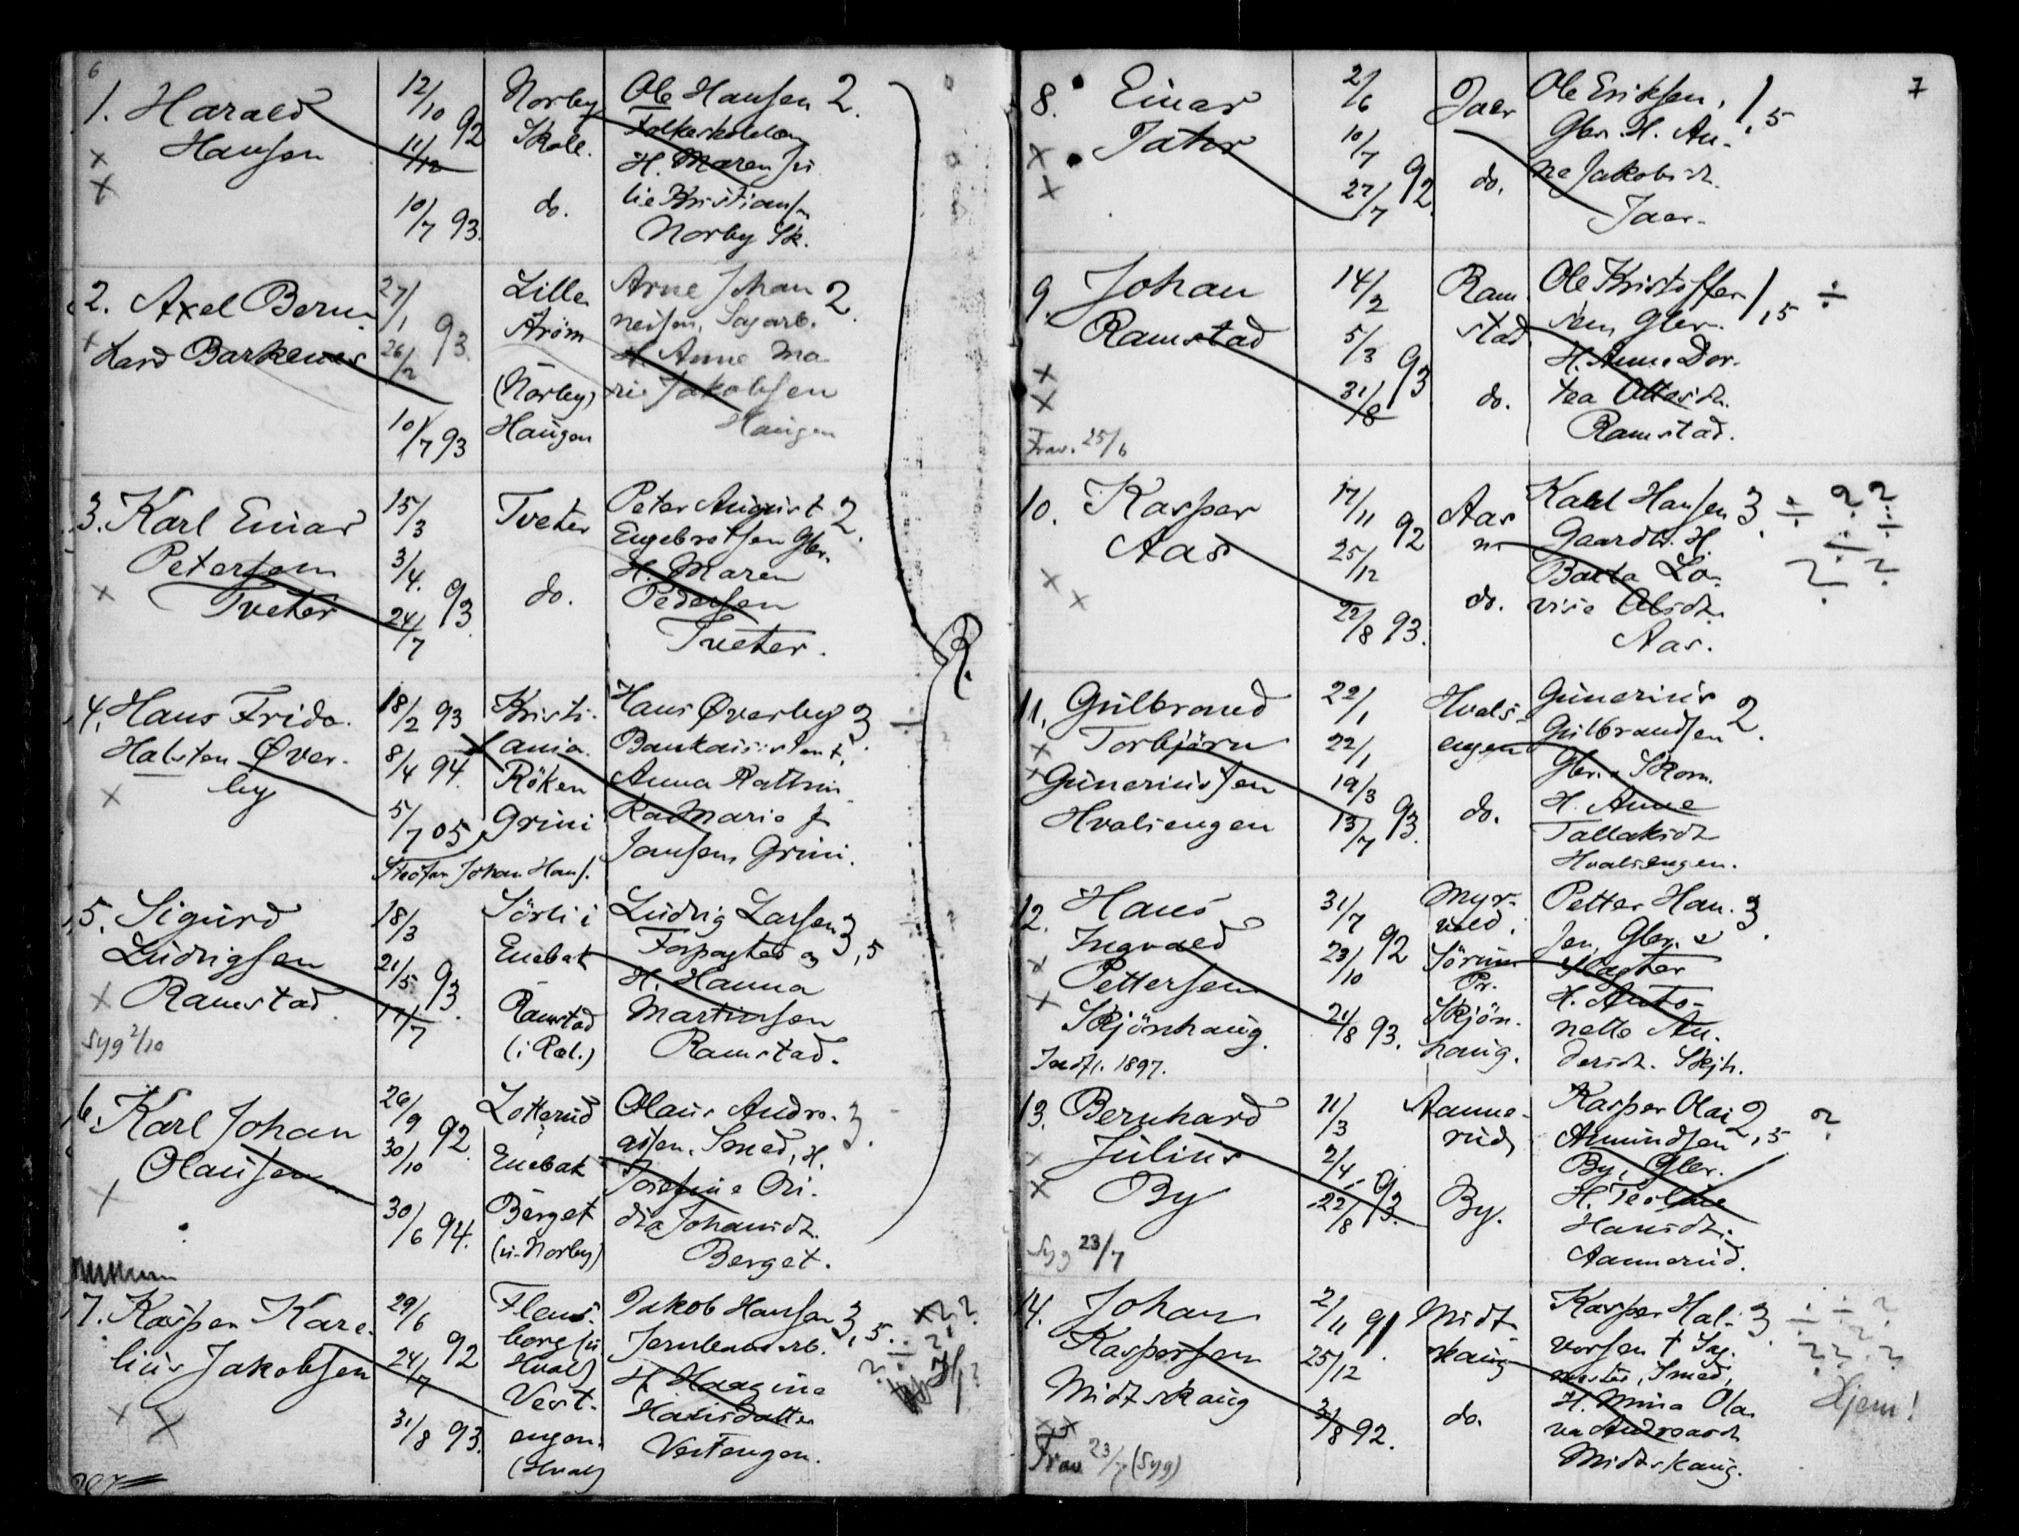 6
1. Harald
Hansen
12/10 92
11/12
10/7 93.
Norby
Skole.
do.
Ole Hansen 2.
H. Maren Ju
lie Kristians
Norby Sk.
2. Axel Bern-
hard Barkenes
27/1 93.
26/2
10/7 93
Lille
Strøm
(Norby)
Haugen
Arne Johan 2.
nesen, Sagarb.
H. Anne Ma
rie Jakobsen
Haugen
3. Karl Einar
Petersen
Tveter
15/3
3/4. 93.
24/7
Tveter
do.
Peter August 2.
Engebretsen Gbr.
H. Maren
Pedersen
Tveter.
R.
4. Hans Frido.
Halsten Øver-
by
18/2 93
8/4 94.
5/7 05
Kristi-
ania.
Röken
Grini
Hans Øverby 3. ÷
Bankassistent,
Anna Kathrin
Ka Marie f.
Jansen, Grini.
Johan Hans.
5. Sigurd
Ludvigsen
Ramstad.
Syg 2/10
18/3
21/5 93.
17/7
Sörli i
Enebak
Ramstad
(i Ræl.)
Ludvig Larsen 3,5
Forpagter og
H. Hanna
Martinsen
Ramstad.
6. Karl Johan
Olausen
26/9 92.
30/10
30/6 94.
Lotterud
i
Enebak
Berget
(u. Norby)
Olaus Andre- 3.
assen, Smed, H.
Josefine Oli-
dia Johansdt.
Berget.
7. Kasper Kare-
lius Jakobsen
29/6
24/7 92
31/8 93.
Flens-
borg (u
Hval)
Vest-
engen.
(Hval)
Jakob Hansen 3,5. ÷
Jernbanearb.
H. Haagine
Hansdatter
Vestengen.
7
8. Einar
Jahr
2/6
10/7 92.
27/7
Jaer
do.
Ole Eriksen, 1,5
Gbr. H. An-
ne Jakobsdt.
Jaer.
9. Johan
Ramstad
Frav. 25/6
14/2
5/3 93
31/8
Ram
stad
do.
Ole Kristoffer 1,5 ÷
sen, Gbr.
H. Anne Dor-
tea Ottersdt.
Ramstad.
10. Kasper
Aas
17/11 92
25/12
22/8 93.
Aas
n.
do.
Karl Hansen 3. ÷ ? ?
Gaardbr. H.
Berta Lo-
vise Olsdt.
Aas.
11. Gulbrand
Torbjörn
Guneriussen
Hvalsengen
22/1
22/1
19/3 93.
13/7
Hvals-
engen
do.
Gunerius 2.
Gulbrandsen
Gbr. & Skom.
H. Anne
Tallaksdt
Hvalsengen.
12. Hans
Ingvald
Pettersen
Skjönhaug.
Indfl. 1897.
31/7 92
23/10
21/8 93.
Myr-
vold i
Sörum
Pr.
Skjön-
haug.
Petter Han- 3.
sen, Gbr. &
Slagter
H. Anto-
nette An-
dersdt. Skjh.
13. Bernhard
Julius
By
Syg 23/7
11/3
2/4 93.
22/8
Aamne-
rud
By.
Kasper Olai 2,5 ?
Amundsen
By, Gbr.
H. Teoline
Hansdt.
Aamnerud.
14. Johan
Kaspersen
Midtskaug
Frav 23/7 (Syg)
2/11 91.
25/12
31/8 92.
Midt-
skaug
do.
Kasper Hal- 3. ÷ ÷ ?
vorsen † Sag-
mester, Smed,
H. Mina Ola-
va Andreasdt
Midtskaug.
Hjem!